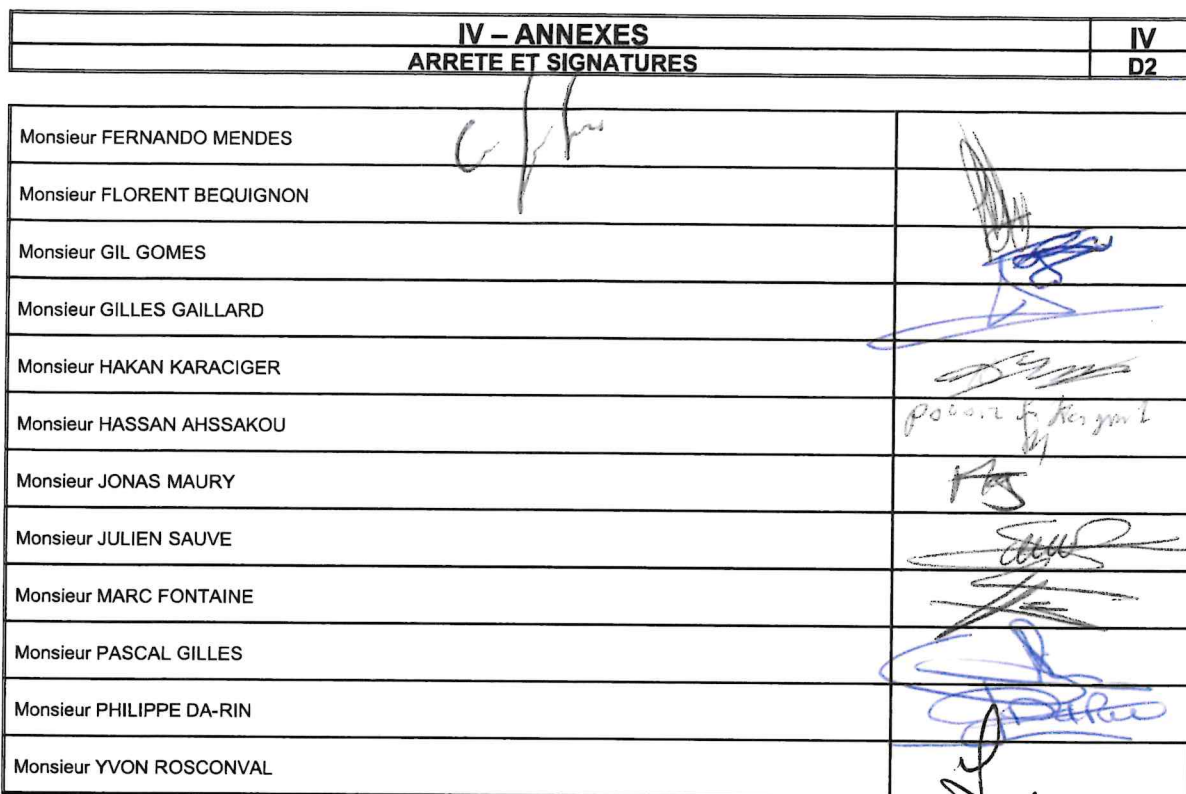 IV – ANNEXES
IV
ARRETE ET SIGNATURES
D2
Monsieur FERNANDO MENDES
Monsieur FLORENT BEQUIGNON
Monsieur GIL GOMES
Monsieur GILLES GAILLARD
Monsieur HAKAN KARACIGER
Monsieur HASSAN AHSSAKOU
Monsieur JONAS MAURY
Monsieur JULIEN SAUVE
Monsieur MARC FONTAINE
Monsieur PASCAL GILLES
Monsieur PHILIPPE DA-RIN
Monsieur YVON ROSCONVAL